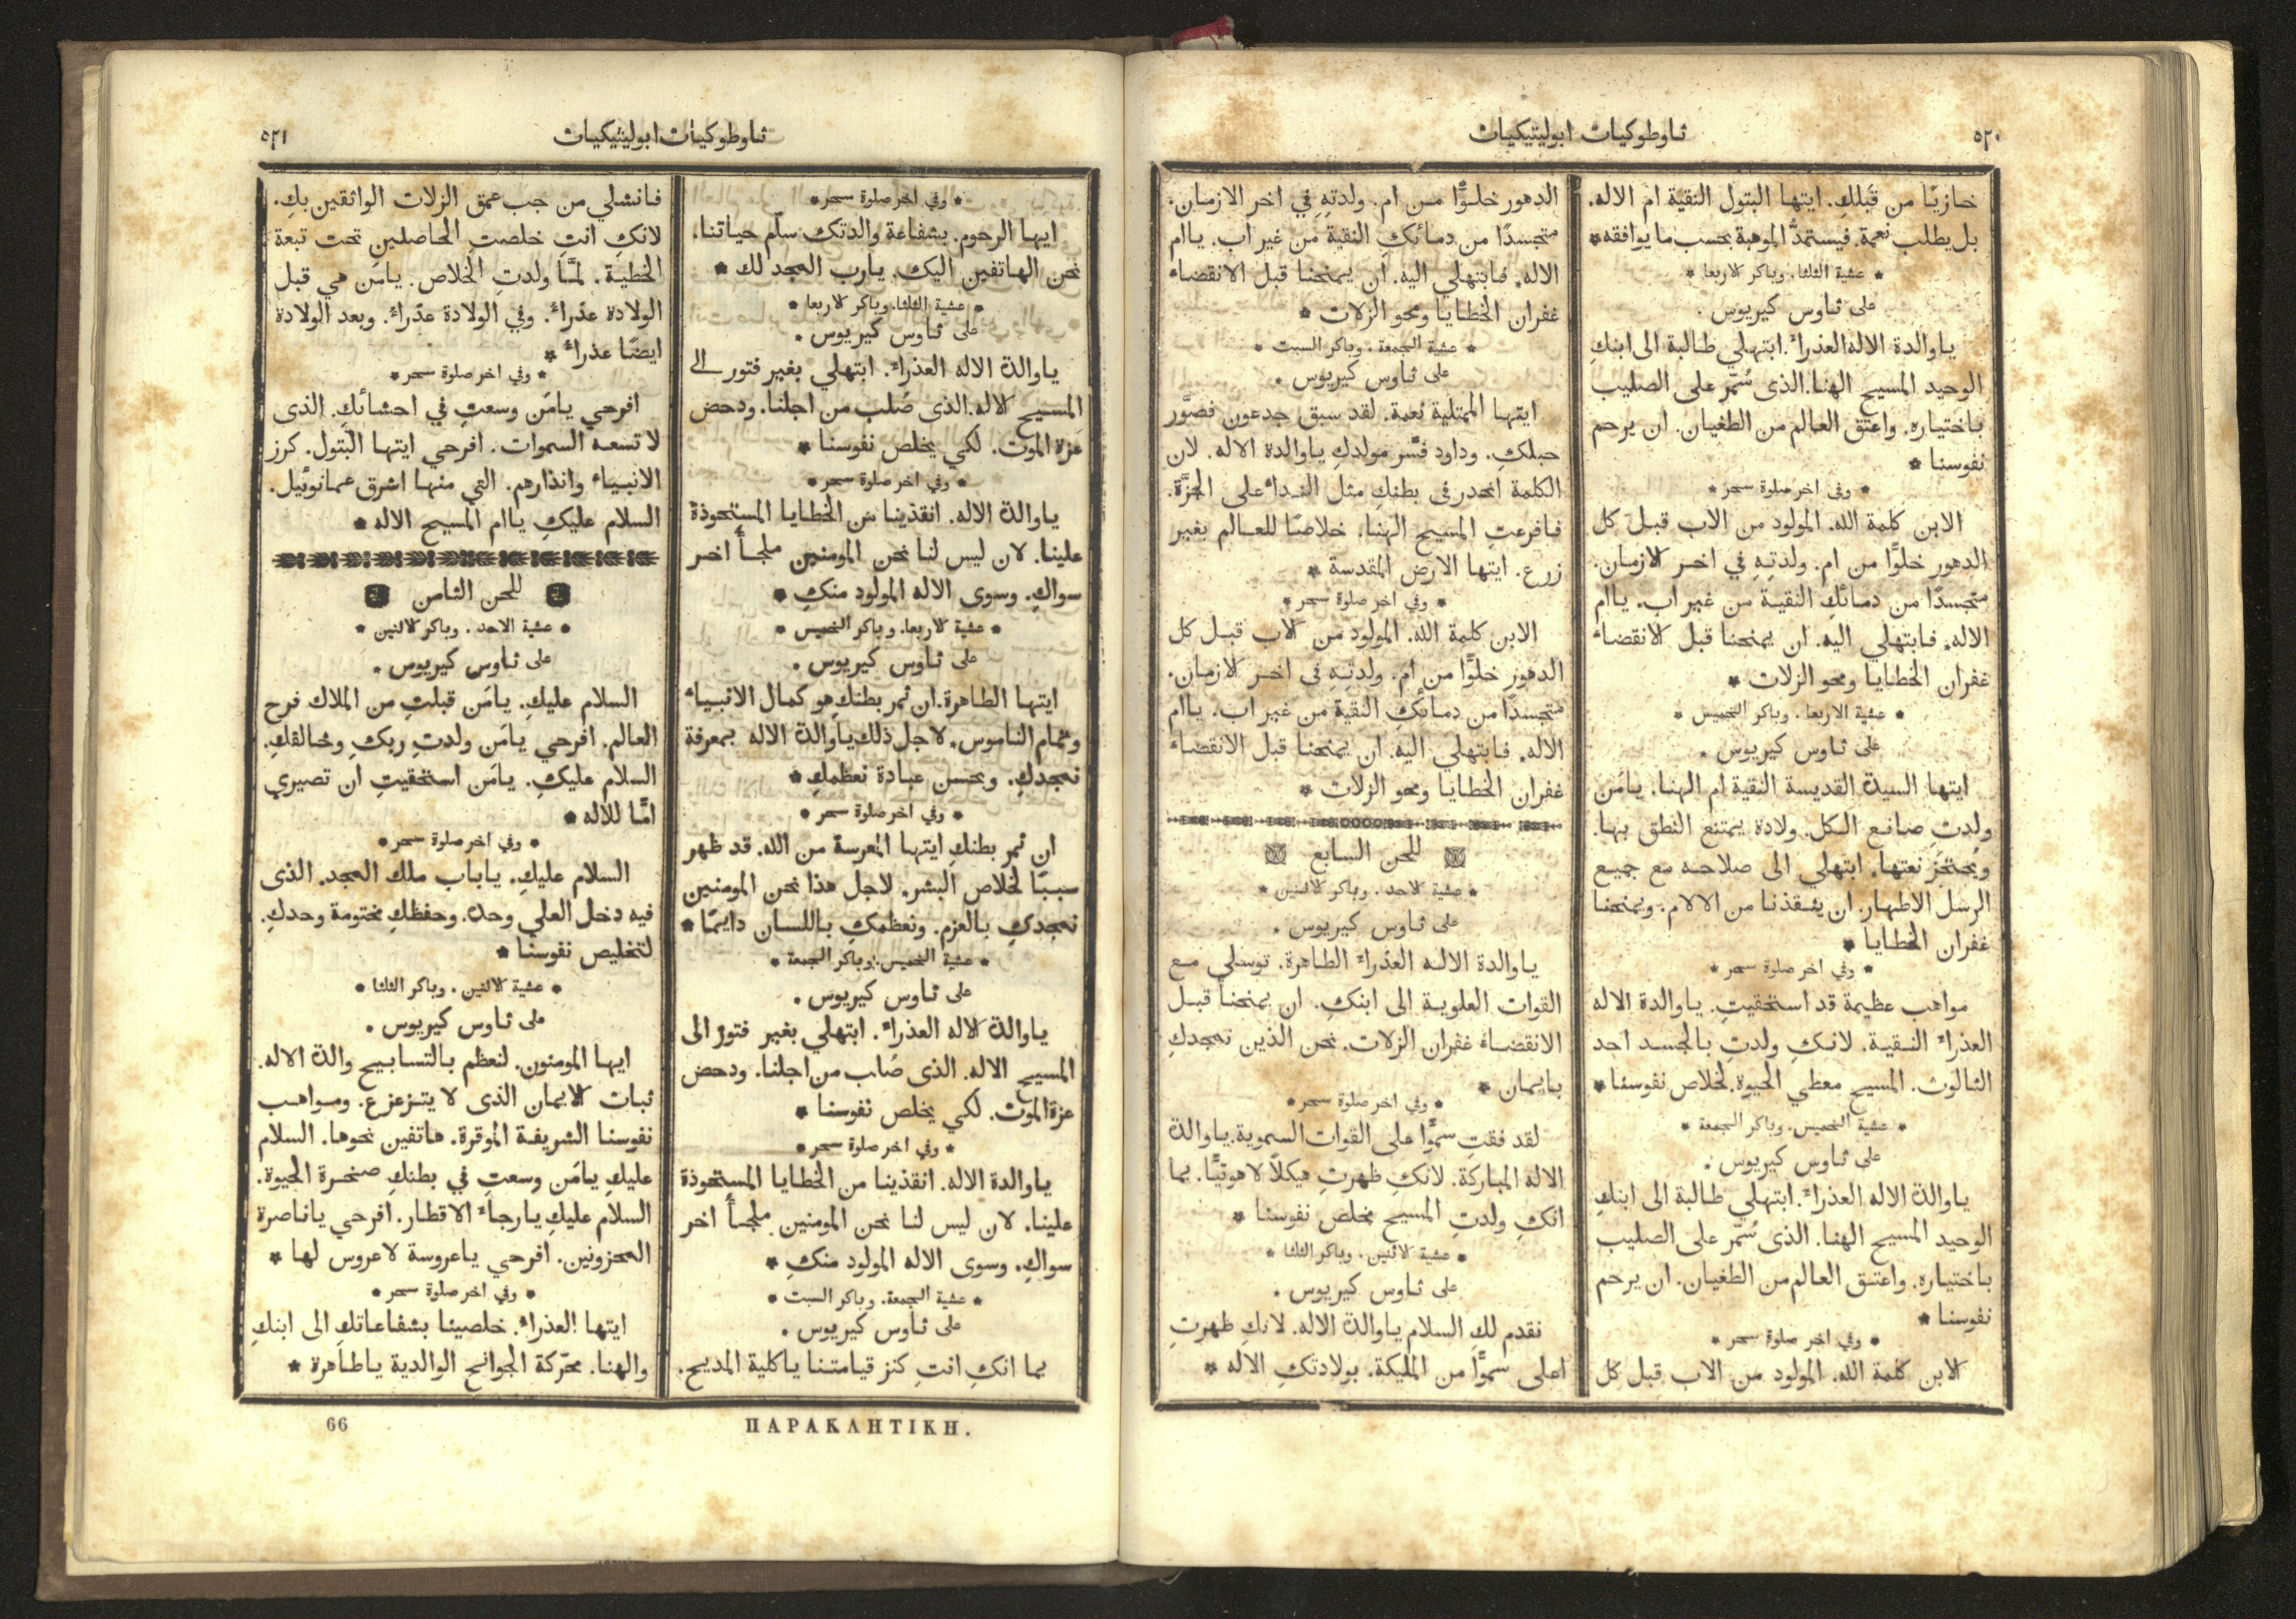 ٥٢٠
ثاوطوكيات ابوليتيكيات
خازيًا من قَبلكِ. ايتها البتول النقية ام الاله.
بل يطلب نعمة. فيستمدُّ الموهبة بحسب ما يوافقه *
* عشية الثلثا. وباكر الاربعا *
على ثاوس كيريوس .
ياوالدة الاله العذراء. ابتهلي طالبة الى ابنكِ
الوحيد المسيح الهنا. الذى سُمّر على الصليب
باختياره. واعتق العالم من الطغيان. ان يرحم
نفوسنا *
* وفي اخر صلوة سحر *
الابن كلمة الله. المولود من الاب قبل كل
الدهور خلوًا من ام. ولدتِهِ في اخر الازمان.
متجسدًا من دمائكِ النقية من غير اب. ياام
الاله. فابتهلي اليه. ان يمنحنا قبل الانقضاء
غفران الخطايا ومحو الزلات *
* عشية الاربعا. وباكر الخميس *
على ثاوس كيريوس .
ايتها السيدة القديسة النقية ام الهنا. يامَن
ولدتِ صانع الكل. ولادة يمتنع النطق بها.
ويُحتجَز نعتها. ابتهلي الى صلاحه مع جميع
الرسل الاطهار. ان ينقذنا من الالام. ويمنحنا
غفران الخطايا *
* وفي اخر صلوة سحر *
مواهب عظيمة قد استحقيتِ. ياوالدة الاله
العذراء النقية. لانكِ ولدتِ بالجسد احد
الثالوث. المسيح معطي الحيوة. لخلاص نفوسنا *
* عشية الخميس. وباكر الجمعة *
على ثاوس كيريوس .
ياوالدة الاله العذراء. ابتهلي طالبة الى ابنكِ
الوحيد المسيح الهنا. الذى سُمّر على الصليب
باختياره. واعتق العالم من الطغيان. ان يرحم
نفوسنا *
* وفي اخر صلوة سحر *
الابن كلمة الله. المولود من الاب قبل كل
الدهور خلوًّا من ام. ولدتِهِ في اخر الازمان.
متجسدًا من دمائكِ النقية من غير اب. ياام
الاله. فابتهلي اليه. ان يمنحنا قبل الانقضاء
غفران الخطايا ومحو الزلات *
* عشية الجمعة. وباكر السبت *
على ثاوس كيريوس .
ايتها الممتلية نعمة. لقد سبق جدعون فصوَّر
حبلكِ. وداود فسَّر مولدكِ ياوالدة الاله. لان
الكلمة انحدر فى بطنكِ مثل الندا على الجزَّة.
فافرعتِ المسيح الهنا. خلاصًا للعالم بغير
زرع. ايتها الارض المقدسة *
* وفي اخر صلوة سحر *
الابن كلمة الله. المولود من الاب قبل كل
الدهور خلوًّا من ام. ولدتِهِ فى اخر الازمان.
متجسدًا من دمائكِ النقية من غير اب. ياام
الاله. فابتهلي اليه. ان يمنحنا قبل الانقضاء
غفران الخطايا ومحو الزلات *
للحن السابع
* عشية الاحد. وباكر الاثنين *
على ثاوس كيريوس .
ياوالدة الاله العذراء الطاهرة. توسلي مع
القوات العلوية الى ابنكِ. ان يمنحنا قبل
الانقضاء غفران الزلات. نحن الذين نمجدكِ
بايمان *
* وفي اخر صلوة سحر *
لقد فقتِ سموًّا على القوات السموية. ياوالدة
الاله المباركة. لانكِ ظهرتِ هيكلاً لاهوتيًّا. بما
انكِ ولدتِ المسيح مخلص نفوسنا *
* عشية الاثنين. وباكر الثلثا *
على ثاوس كيريوس .
نقدم لكِ السلام ياوالدة الاله. لانكِ ظهرتِ
اعلى سموًّا من المليكة. بولادتكِ الاله *
ثاوطوكيات ابوليتيكيات
٥٢١
* وفي اخر صلوة سحر *
ايها الرحوم. بشفاعة والدتك سلّم حياتنا.
نحن الهاتفين اليك. يارب المجد لك *
* عشية الثلثا. وباكر الاربعا *
على ثاوس كيريوس .
ياوالدة الاله العذراء. ابتهلي بغير فتور الى
المسيح الاله. الذى صُلب من اجلنا. ودحض
عزة الموت. لكي يخلص نفوسنا *
* وفي اخر صلوة سحر *
ياوالدة الاله. انقذينا من الخطايا المستحوذة
علينا. لان ليس لنا نحن المومنين ملجأً اخر
سواكِ. وسوى الاله المولود منكِ *
* عشية الاربعا. وباكر الخميس *
على ثاوس كيريوس .
ايتها الطاهرة. ان ثمر بطنكِ هو كمال الانبياء
وتمام الناموس. لاجل ذلك ياوالدة الاله بمعرفة
نمجدكِ. وبحسن عبادة نعظمكِ *
* وفي اخر صلوة سحر *
ان ثمر بطنكِ ايتها المعرسة من الله. قد ظهر
سببًا لخلاص البشر. لاجل هذا نحن المومنين
نمجدكِ بالعزم. ونعظمكِ باللسان دايمًا *
* عشية الخميس. وباكر الجمعة *
على ثاوس كيريوس .
ياوالدة الاله العذراء. ابتهلي بغير فتور الى
المسيح الاله. الذى صُلب من اجلنا. ودحض
عزة الموت. لكي يخلص نفوسنا *
* وفي اخر صلوة سحر *
ياوالدة الاله. انقذينا من الخطايا المستحوذة
علينا. لان ليس لنا نحن المومنين ملجأً اخر
سواكِ. وسوى الاله المولود منكِ *
* عشية الجمعة. وباكر السبت *
على ثاوس كيريوس .
بما انكِ انتِ كنز قيامتنا ياكلية المديح.
فانشلي من جب عمق الزلات الواثقين بكِ.
لانكِ انتِ خلصتِ الحاصلين تحت تبعة
الخطية. لمَّا ولدتِ الخلاص. يامَن هي قبل
الولادة عذراء. وفي الولادة عذراء. وبعد الولادة
ايضًا عذراء *
* وفي اخر صلوة سحر *
افرحي يامَن وسعتِ في احشائكِ. الذى
لا تسعه السموات. افرحي ايتها البتول. كرز
الانبياء وانذارهم. التي منها اشرق عمانوئيل.
السلام عليكِ ياام المسيح الاله *
للحن الثامن
* عشية الاحد. وباكر الاثنين *
على ثاوس كيريوس .
السلام عليكِ. يامَن قبلتِ من الملاك فرح
العالم. افرحي يامَن ولدتِ ربكِ وخالقكِ.
السلام عليكِ. يامَن استحقيتِ ان تصيري
امًّا للاله *
* وفي اخر صلوة سحر *
السلام عليكِ. ياباب ملك المجد. الذى
فيه دخل العلي وحده. وحفظكِ مختومة وحدكِ.
لتخليص نفوسنا *
* عشية الاثنين. وباكر الثلثا *
على ثاوس كيريوس .
ايها المومنون. لنعظم بالتسابيح والدة الاله.
ثبات الايمان الذى لا يتزعزع. ومواهب
نفوسنا الشريفة الموقرة. هاتفين نحوها. السلام
عليكِ يامَن وسعتِ في بطنكِ صخرة الحيوة.
السلام عليكِ يارجاء الاقطار. افرحي ياناصرة
المحزونين. افرحي ياعروسة لا عروس لها *
* وفي اخر صلوة سحر *
ايتها العذراء. خلصينا بشفاعاتكِ الى ابنكِ
والهنا. محرّكة الجوانح الوالدية ياطاهرة *
ΠΑΡΑΚΛΗΤΙΚΗ.
66